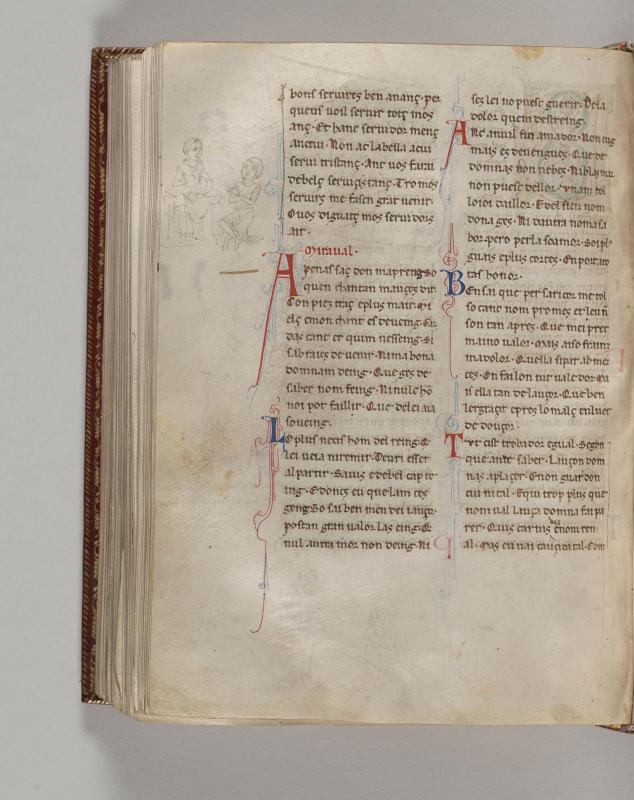 bons seruirez ben ananç. per
queus uoil seruir totç mos
anç. Et hanc seruidor menç
anctui. Non ac la bella acui
serui tristanç. Anc uos farai
de belç seruisis tanç. Tro mos
seruirs me fasen grat uenir.
O uos diguatç mos seruidors
air.
Miraual.
A penas saç don mapreng. So
quen chantan maucez dir.
Con pietz traç e plus mair. Mi
elç e mon chant es deueing. Gar
das tant er quim nesseing. Si
sabraies de uenir. Ni ma bona
domnam deing. Que ges de
saber nom feing. Ni nulc ho
noi pot faillir. Que de lei ua
soueing.
L o plus necis hom del reing. Qe
lei ueia ni remir. Deuri esser
al partir. Sauis e de bel capte
ing. E donçs eu que lam ces
geng. So sai ben men dei iauzir.
Pos tan gran ualor las eing. Qe
nul autra mor non deing. Ni
ses lei no puesc guerir. De la
dolor quem destreing.
A nc a nuil fin amador. Non cug
mais es deuengues. Que de
domnas non nebes. Ni blasmar
non puesc de llor. Vnam tol
loioi daillor. E del sieu nom
dona ges. Ni dautra no ma sa
bor. pero per la soamor. Soi pl
guais e plus cortes. En port atotas
honor.
B en sai que per sa ricor me tol
so canc nom promes et leu ni
son tan apres. Que mei pret
maino ualor. Mais aiso franz
ma dolor. Quella si par ab mer
ces. On fai lon tut uale dor. Ga
ri ella tan de lauçor. Que ben
lergraçit e pres lo malç en luec
de douçor.
T ut cist trobador egual. Segon
que ant saber. Lauçon dom
nas a plaçer. E non guardon
cui ni cal. E qui trop plus que
nom ual lauça domna fai pa
rer. Quis carnis e nom ren
al. Mas eu nai cauçida tal. Com